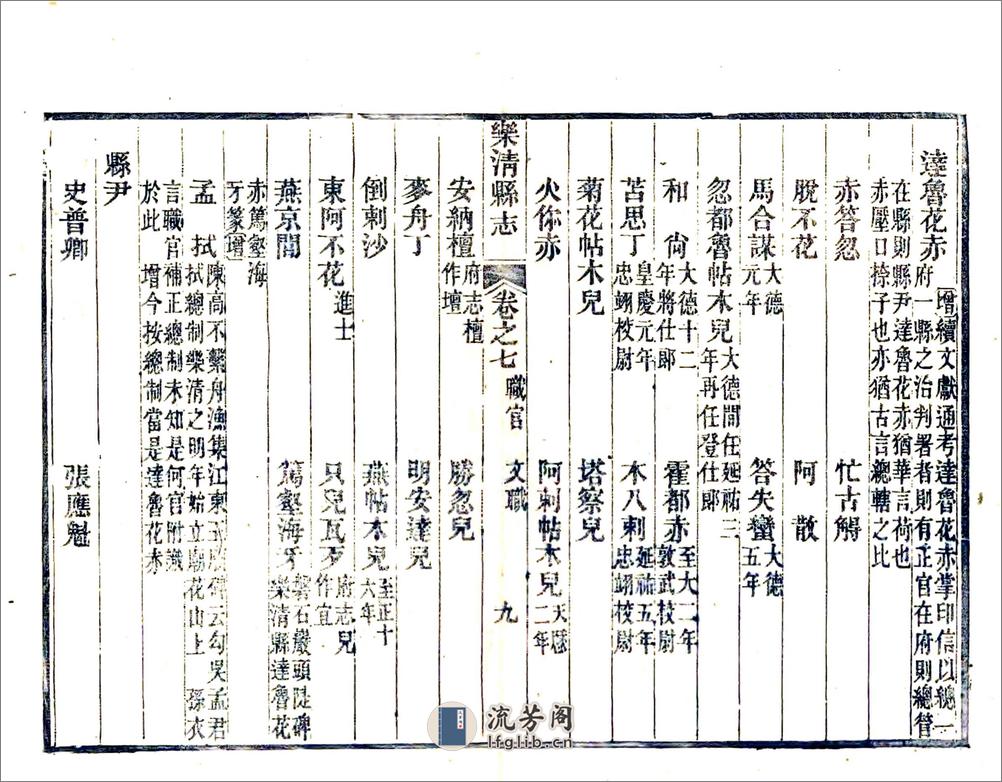 達魯花赤增續文獻通考達魯花赤掌印信以總一
府一縣之治判署者則有正官在府則總管
在縣則縣尹達魯花赤猶華言荷也
赤壓口捺子也亦猶古言總轄之比
赤答忽 忙古䚟
脫不花 阿散
馬合謀大德元年 答失蠻大德五年
忽都魯帖木兒大德閒任延祐三年再任登仕郎
和尙大德十二年將仕郎 霍都赤至大二年敦武校尉
苦思丁皇慶元年忠翊校尉 木八剌延祐五年忠翊校尉
菊花帖木兒 塔察兒
火你赤 阿剌帖木兒天曆二年
樂淸縣志 卷之七 職官 文職 九
安納檀府志檀作壇 勝忽兒
麥舟丁 明安達兒
倒剌沙 燕帖木兒至正十六年
東阿不花進士 只兒瓦歹府志兒作宜
燕京閭 篤壑海牙磐石巖頭陡碑樂淸縣達魯花
赤篤壑海牙篆增
孟拭陳高不繫舟漁集江東碑云勾吳孟君
拭總制樂淸之明年始立廟花山上 孫衣
言職官補正總制未知是何官附識
於此 增今按總制當是達魯花赤
縣尹
史普卿 張應魁
流芳阁
lfglib.cn